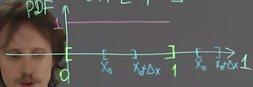 PDF
1
0 X₀ X₀+Δx 1 X₀ X₀+Δx 1